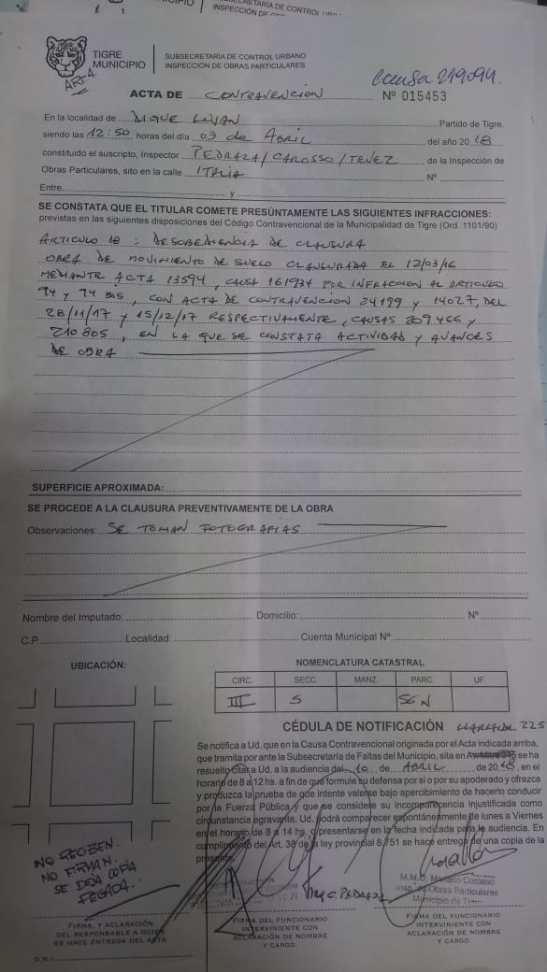 MUNICIPIO
SUBSECRETARIA DE CONTROL
INSPECCIÓN DE
TIGRE
MUNICIPIO
SUBSECRETARIA DE CONTROL URBANO
INSPECCIÓN DE OBRAS PARTICULARES
ART-4
Causa 219094.
ACTA DE CONTRAVENCION Nº 015453
En la localidad de DIQUE LUJAN Partido de Tigre,
siendo las 12:50 horas del día 03 de Abril del año 2018
constituído el suscripto, Inspector PEDRAZA/CAROSSO/TENEZ de la Inspección de
Obras Particulares, sito en la calle ITALIA Nº
Entre y
SE CONSTATA QUE EL TITULAR COMETE PRESÚNTAMENTE LAS SIGUIENTES INFRACCIONES:
previstas en las siguientes disposiciones del Código Contravencional de la Municipalidad de Tigre (Ord. 1101/90)
ARTICULO 18 : DESOBEDIENCIA DE CLAUSURA
OBRA DE MOVIMIENTO DE SUELO CLAUSURADA EL 12/03/16
MEDIANTE ACTA 13594, CAUSA 161934 POR INFRACCION AL ARTICULO
74 y 74 BIS, CON ACTA DE CONTRAVENCION 24199 y 14027, DEL
28/11/17 y 15/12/17 RESPECTIVAMENTE, CAUSAS 209466 y
210805, EN LA QUE SE CONSTATA ACTIVIDAD y AVANCES
DE OBRA
SUPERFICIE APROXIMADA:
SE PROCEDE A LA CLAUSURA PREVENTIVAMENTE DE LA OBRA
Observaciones: SE TOMAN FOTOGRAFIAS
Nombre del Imputado: Domicilio: Nº
C.P. Localidad Cuenta Municipal Nº
UBICACIÓN:
NOMENCLATURA CATASTRAL
CIRC. SECC. MANZ. PARC. UF
III S S6N
CÉDULA DE NOTIFICACIÓN 225
Se notifica a Ud. que en la Causa Contravencional originada por el Acta indicada arriba,
que tramita por ante la Subsecretaría de Faltas del Municipio, sita en se ha
resuelto citar a Ud. a la audiencia del 10 de ABRIL de 2018, en el
horario de 8 a 12 hs. a fin de que formule su defensa por sí o por su apoderado y ofrezca
y produzca la prueba de que intente valerse bajo apercibimiento de hacerlo conducir
por la Fuerza Pública y que se considere su incomparencia injustificada como
circunstancia agravante. Ud. podrá comparecer espontáneamente de lunes a Viernes
en el horario de 8 a 14 hs. y presentarse en la fecha indicada para la audiencia. En
cumplimiento del Art. 38 de la ley provincial 8.751 se hace entrega de una copia de la
presente.
NO RECIBEN.
NO FIRMAN.
SE DEJA COPIA
PEGADA.
FIRMA, Y ACLARACIÓN
DEL RESPONSABLE A QUIEN
SE HACE ENTREGA DEL ACTA
D.N.I.
PEDRAZA
Obras Particulares
Municipio de Tigre
FIRMA DEL FUNCIONARIO
INTERVINIENTE CON
ACLARACIÓN DE NOMBRE
Y CARGO
FIRMA DEL FUNCIONARIO
INTERVINIENTE CON
ACLARACIÓN DE NOMBRE
Y CARGO